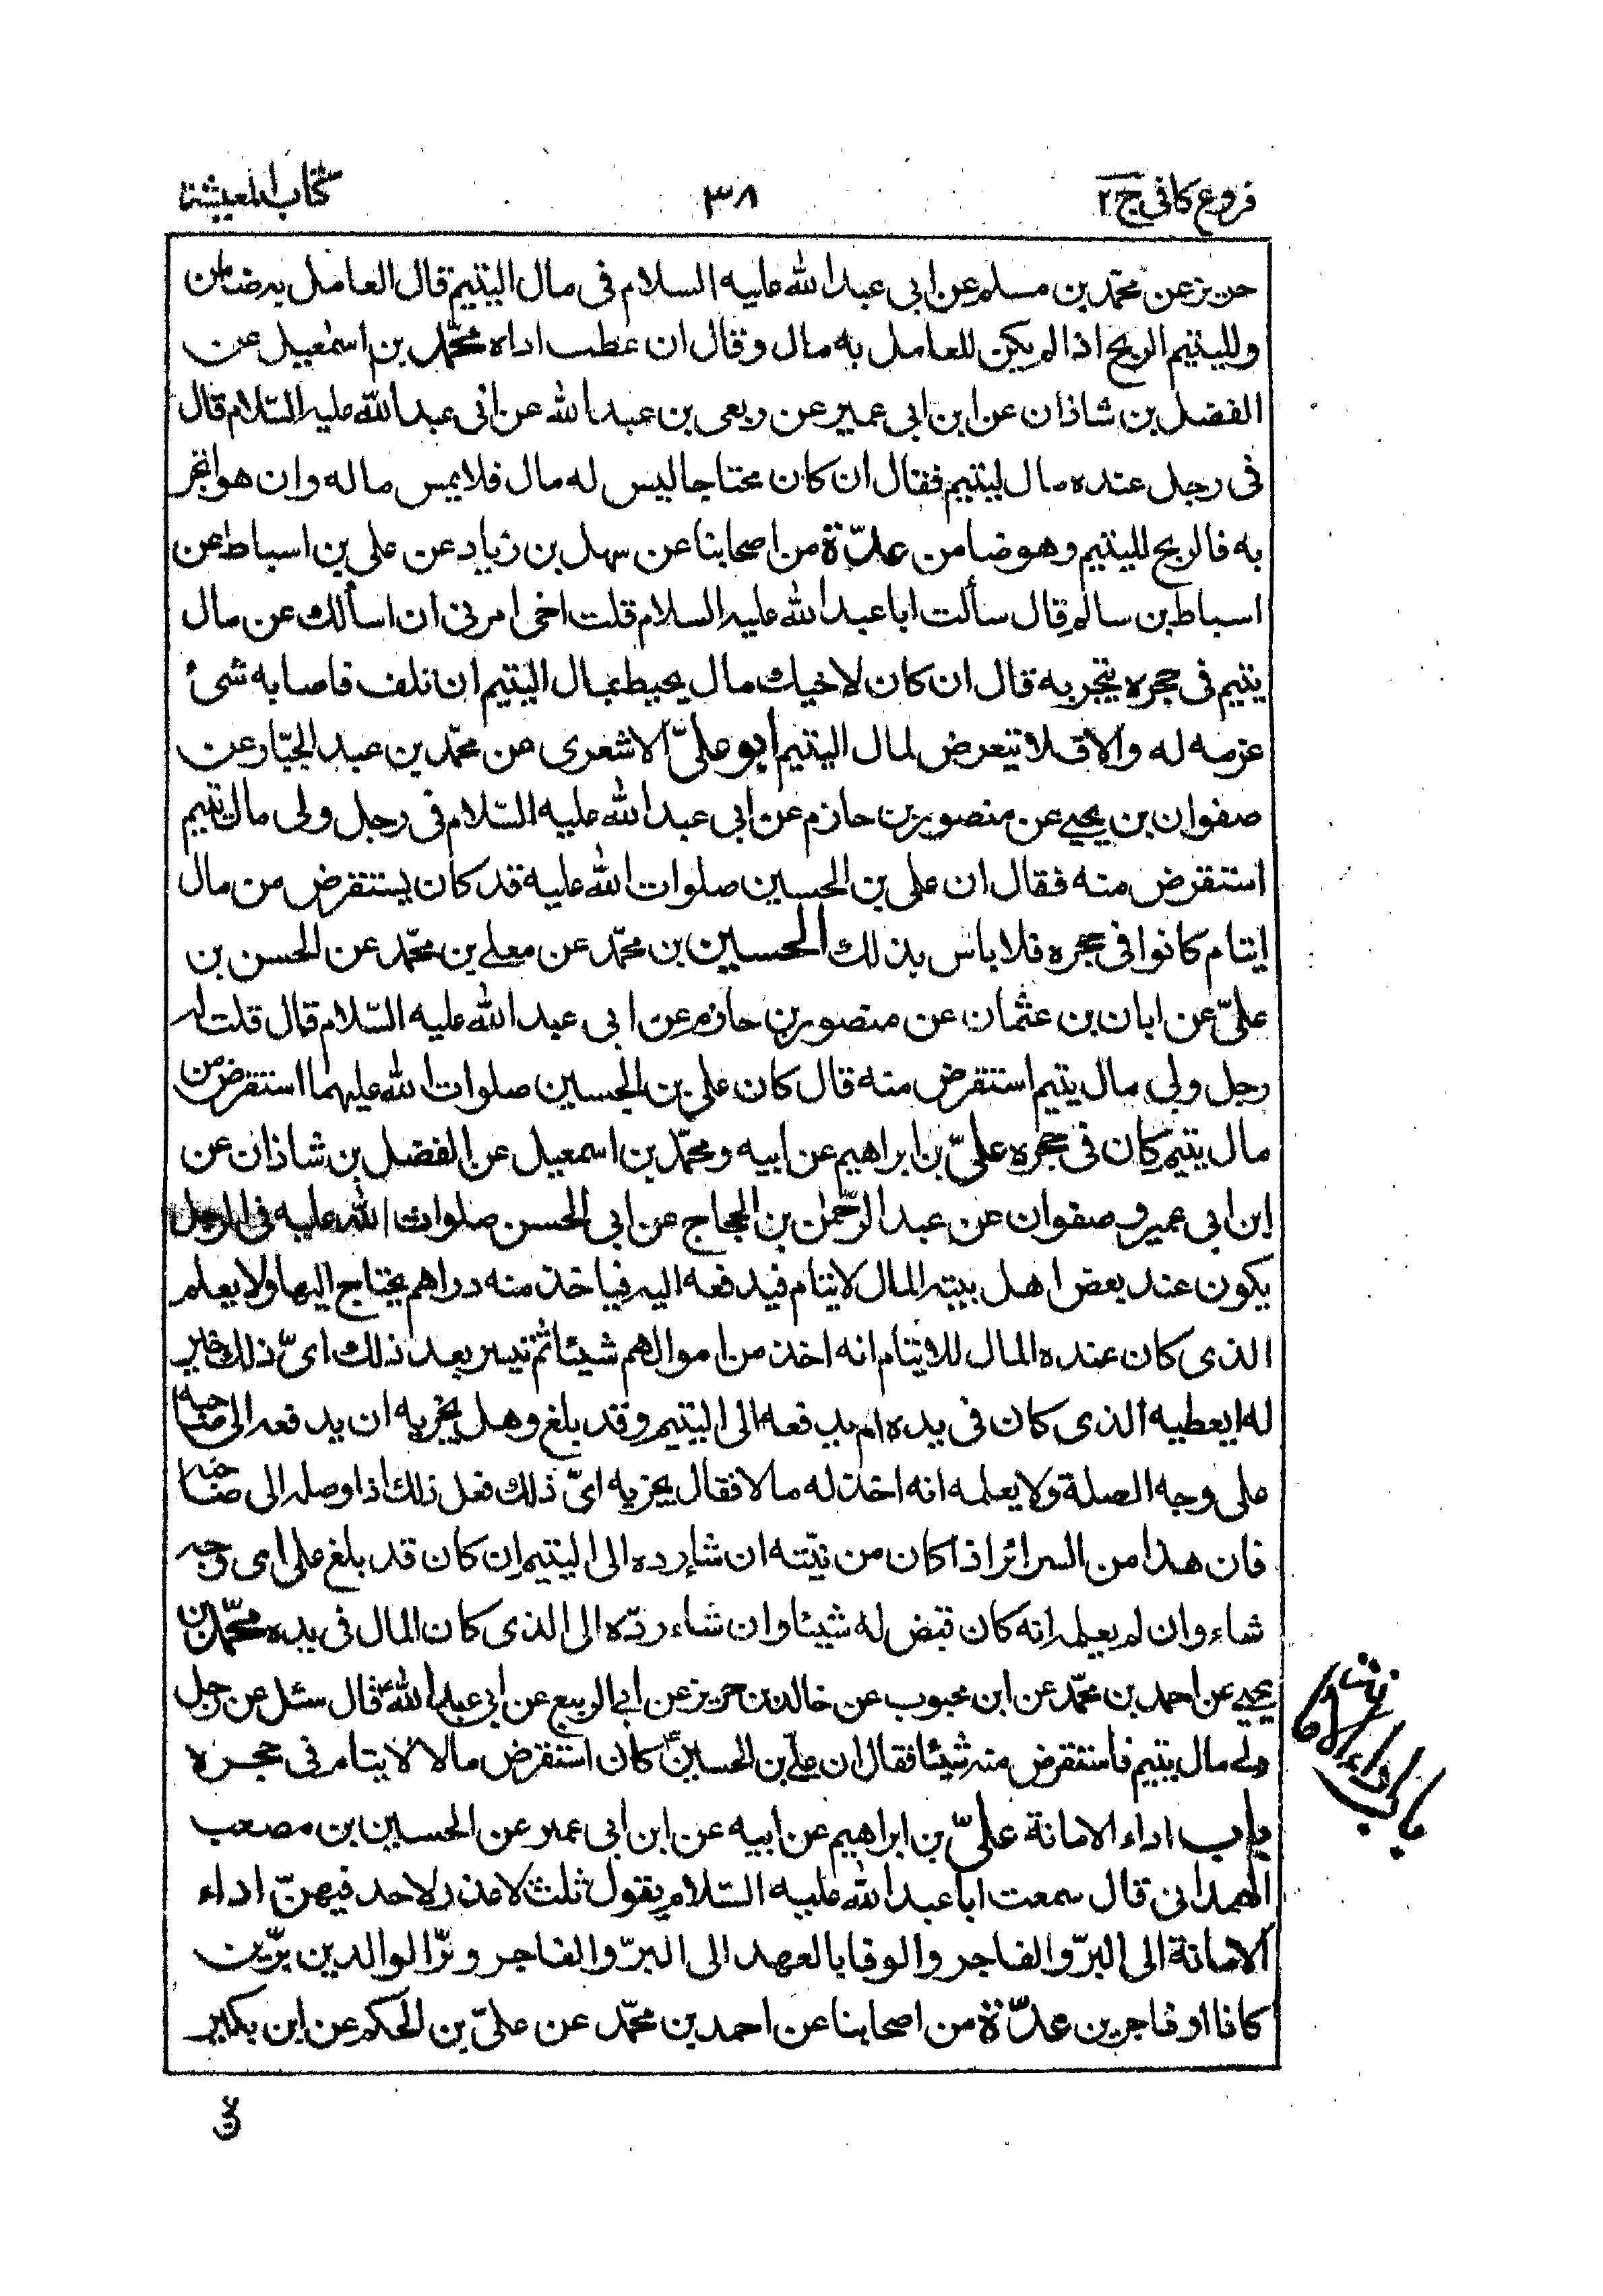 فروع كافى ج٢
٣٨
كتاب المعيشة
حريز عن محمّد بن مسلم عن ابى عبد الله عليه السلام فى مال اليتيم قال العامل به ضامن
ولليتيم الربح اذا لم يكن للعامل به مال وقال ان عطب اداه محمّد بن اسمعيل عن
الفضل بن شاذان عن ابن ابى عمير عن ربعى بن عبد الله عن ابى عبد الله عليه السّلام قال
فى رجل عنده مال ليتيم فقال ان كان محتاجا ليس له مال فلا يمس ماله وان هو اتجر
به فالربح لليتيم وهو ضامن عدّة من اصحابنا عن سهل بن زياد عن على بن اسباط عن
اسباط بن سالم قال سألت ابا عبد الله عليه السلام قلت اخى امرنى ان اسألك عن مال
يتيم فى حجره يتجر به قال ان كان لاخيك مال يحيط بمال اليتيم ان تلف فاصابه شئ
غرمه له والّا فلا يتعرض لمال اليتيم ابو علىّ الاشعرى عن محمّد بن عبد الجبّار عن
صفوان بن يحيى عن منصور بن حازم عن ابى عبد الله عليه السّلام فى رجل ولى مال يتيم
استقرض منه فقال ان على بن الحسين صلوات الله عليه قد كان يستقرض من مال
ايتام كانوا فى حجره فلا باس بذلك الحسين بن محمّد عن معلى بن محمّد عن الحسن بن
علىّ عن ابان بن عثمان عن منصور بن حازم عن ابى عبد الله عليه السّلام قال قلت له
رجل ولى مال يتيم استقرض منه قال كان على بن الحسين صلوات الله عليهما استقرض من
مال يتيم كان فى حجره علىّ بن ابراهيم عن ابيه ومحمّد بن اسمعيل عن الفضل بن شاذان عن
ابن ابى عمير وصفوان عن عبد الرّحمن بن الحجاج عن ابى الحسن صلوات الله عليه فى الرجل
يكون عند بعض اهل بيته المال لايتام فيدفعه اليه فياخذ منه دراهم يحتاج اليها ولا يعلم
الذى كان عنده المال للايتام انه اخذ من اموالهم شيئا ثم تيسر بعد ذلك اىّ ذلك خير
له ايعطيه الذى كان فى يده ام يدفعه الى اليتيم وقد بلغ وهل يجزيه ان يدفعه الى صاحبه
على وجه الصلة ولا يعلمه انه اخذ له مالا فقال يجزيه اىّ ذلك فعل ذلك اذا وصله الى صاحبه
فان هذا من السرائر اذا كان من نيّته ان شاء رده الى اليتيم ان كان قد بلغ على اى وجه
شاء وان لم يعلمه انه كان قبض له شيئا وان شاء ردّه الى الذى كان المال فى يده محمّد بن
يحيى عن احمد بن محمّد عن ابن محبوب عن خالد بن حريز عن ابى الربيع عن ابى عبد الله ع قال سئل عن رجل
ولى مال يتيم فاستقرض منه شيئا فقال ان على بن الحسين ع كان استقرض مالا لايتام فى حجره
باب اداء الامانة علىّ بن ابراهيم عن ابيه عن ابن ابى عمير عن الحسين بن مصعب
الهمدانى قال سمعت ابا عبد الله عليه السّلام يقول ثلث لا عذر لاحد فيهنّ اداء
الامانة الى البرّ والفاجر والوفا بالعهد الى البرّ والفاجر وبرّ الوالدين برّين
كانا او فاجرين عدّة من اصحابنا عن احمد بن محمّد عن علىّ بن الحكم عن ابن بكير
باب اداء الامانة